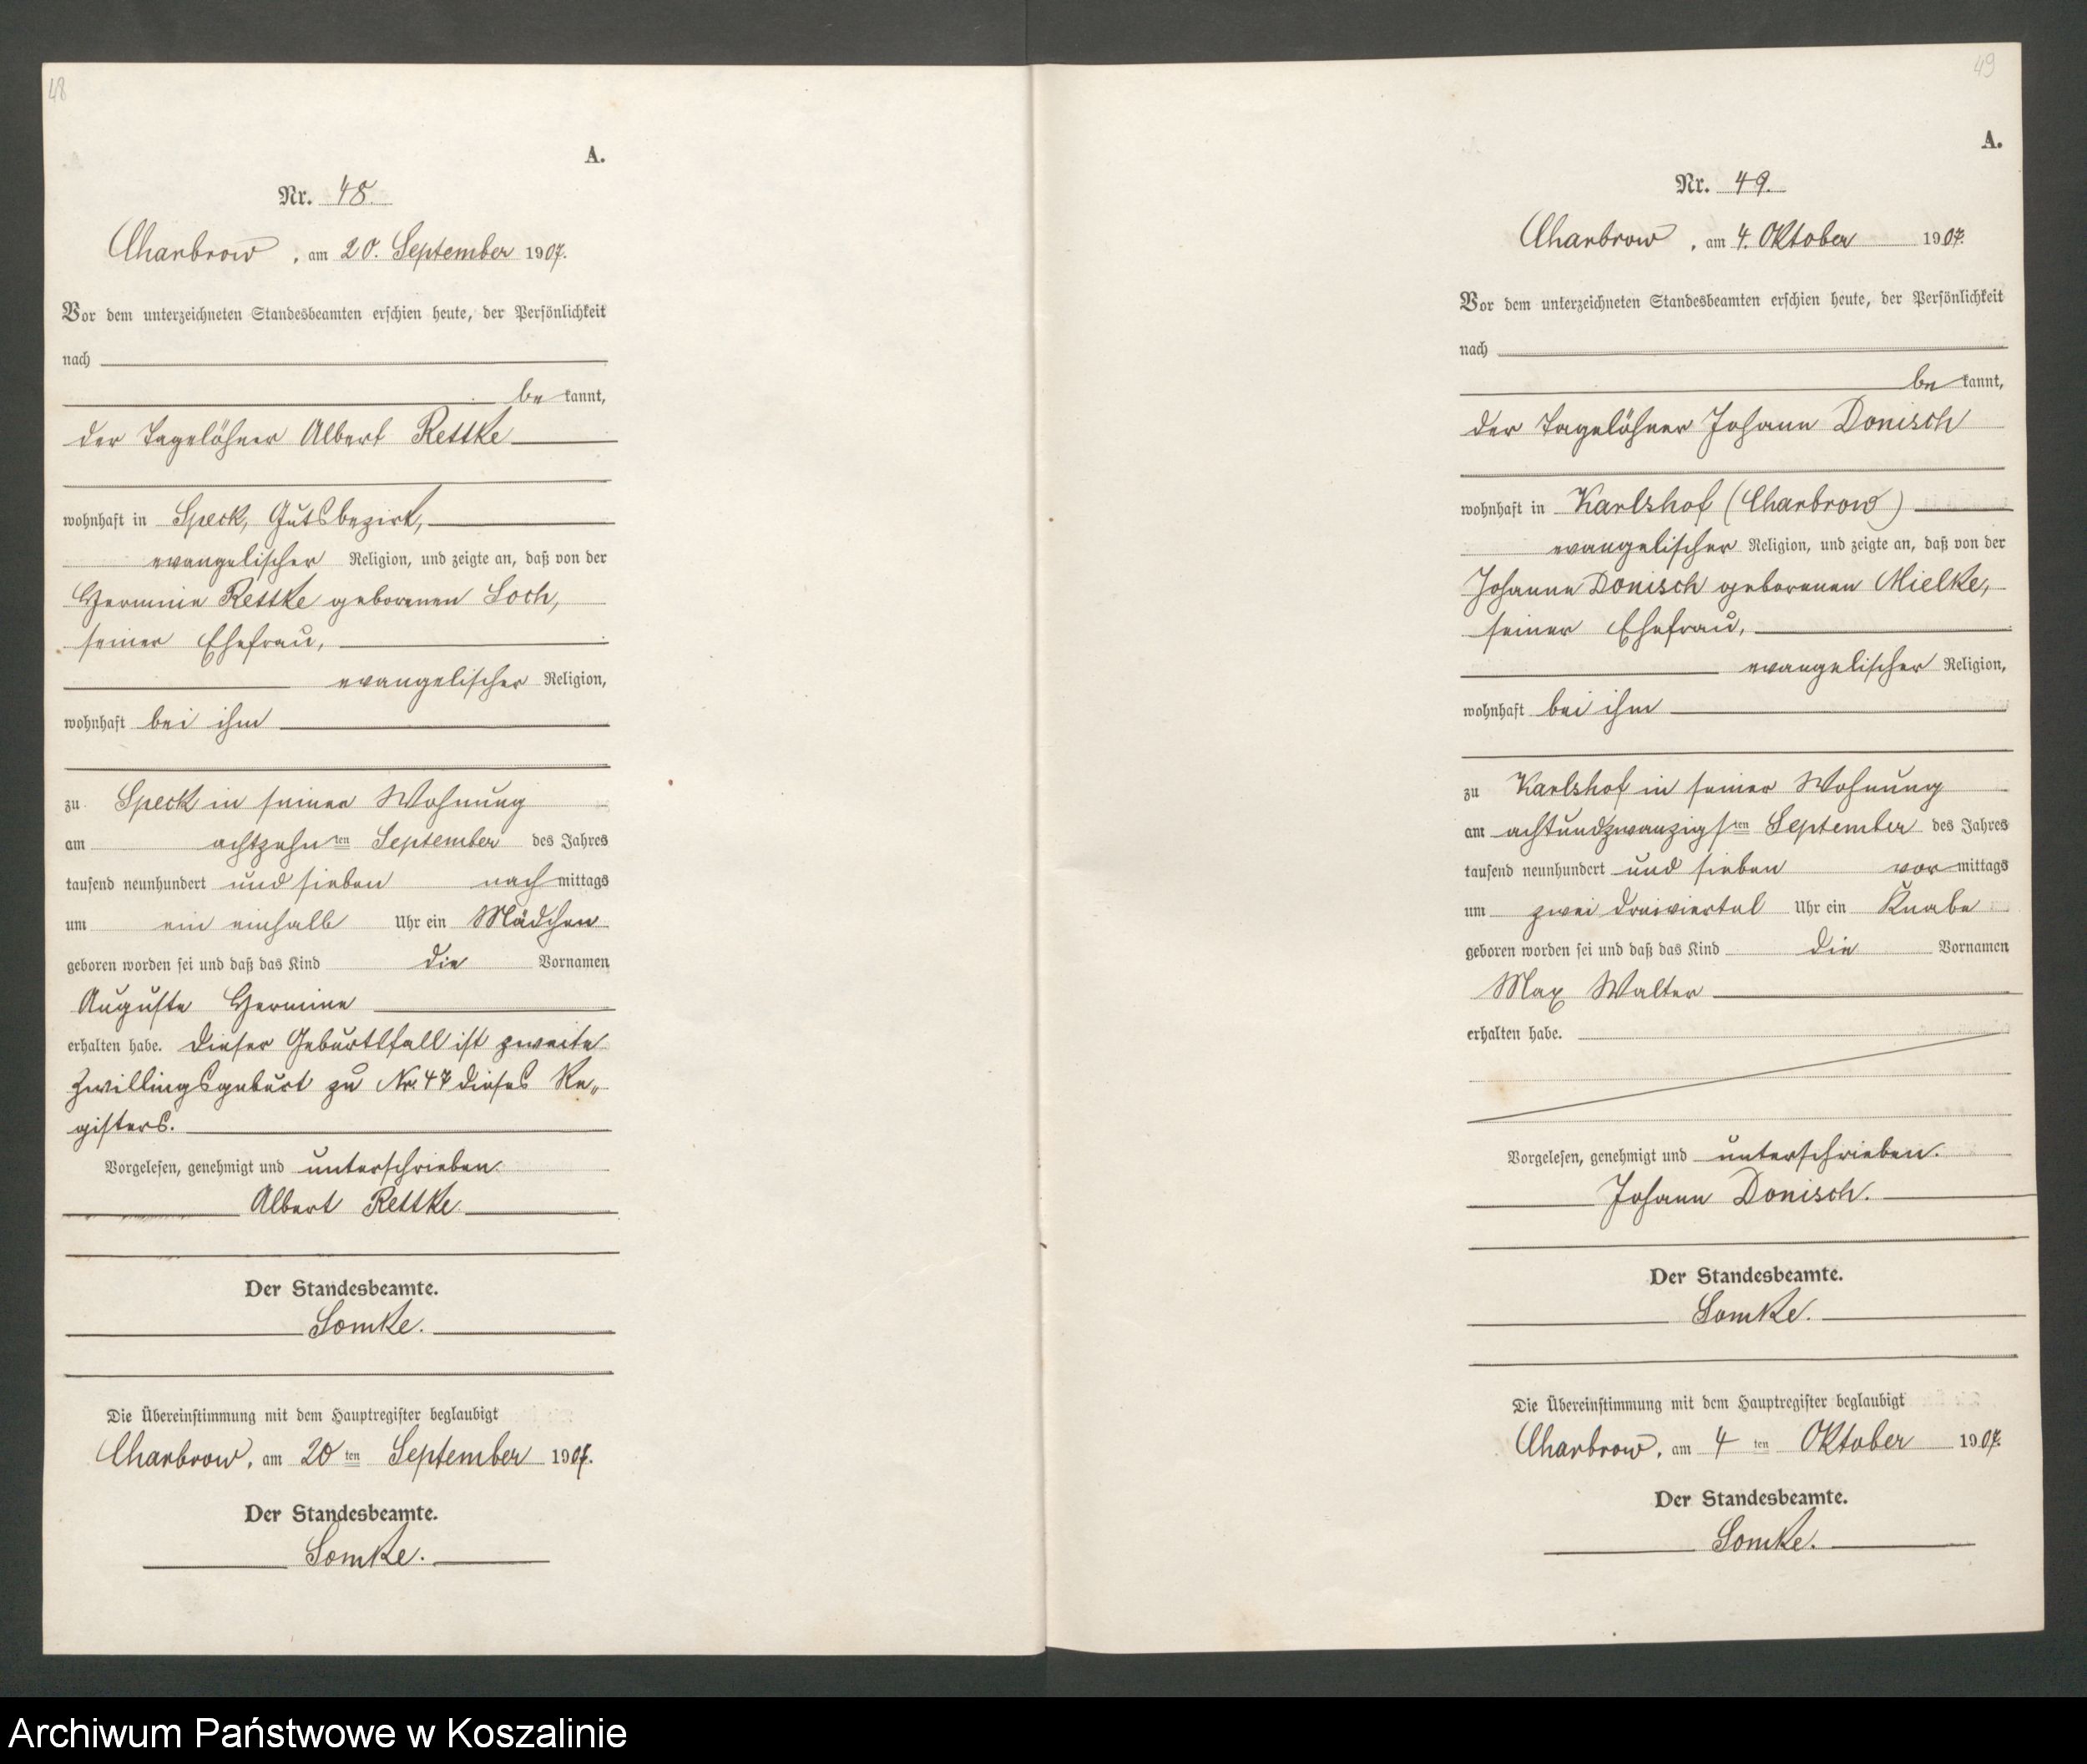 48
A.
Nr. 48.
Charbrow, am 20. September 1907.
Vor dem unterzeichneten Standesbeamten erschien heute, der Persönlichkeit
nach
be kannt,
der Tagelöhner Albert Rettke
wohnhaft in Speck, Gutsbezirk,
evangelischer Religion, und zeigte an, daß von der
Hermine Rettke geborenen Loch,
seiner Ehefrau,
evangelischer Religion,
wohnhaft bei ihm
zu Speck in seiner Wohnung
am achtzehn ten September des Jahres
tausend neunhundert und sieben nach mittags
um ein einhalb Uhr ein Mädchen
geboren worden sei und daß das Kind die Vornamen
Auguste Hermine
erhalten habe. Dieser Geburtsfall ist zweite
Zwillingsgeburt zu Nr. 47 dieses Re„
gisters.
Vorgelesen, genehmigt und unterschrieben.
Albert Rettke
Der Standesbeamte.
Lomke.
Die Übereinstimmung mit dem Hauptregister beglaubigt
Charbrow, am 20 ten September 1907.
Der Standesbeamte.
Lomke.
49
A.
Nr. 49.
Charbrow, am 4. Oktober 1907.
Vor dem unterzeichneten Standesbeamten erschien heute, der Persönlichkeit
nach
be kannt,
der Tagelöhner Johann Donisch
wohnhaft in Karlshof (Charbrow)
evangelischer Religion, und zeigte an, daß von der
Johanne Donisch geborenen Mielke,
seiner Ehefrau,
evangelischer Religion,
wohnhaft bei ihm
zu Karlshof in seiner Wohnung
am achtundzwanzigs ten September des Jahres
tausend neunhundert und sieben vor mittags
um zwei dreiviertel Uhr ein Knabe
geboren worden sei und daß das Kind die Vornamen
Max Walter
erhalten habe.
Vorgelesen, genehmigt und unterschrieben.
Johann Donisch.
Der Standesbeamte.
Lomke.
Die Übereinstimmung mit dem Hauptregister beglaubigt
Charbrow, am 4 ten Oktober 1907.
Der Standesbeamte.
Lomke.
Archiwum Państwowe w Koszalinie